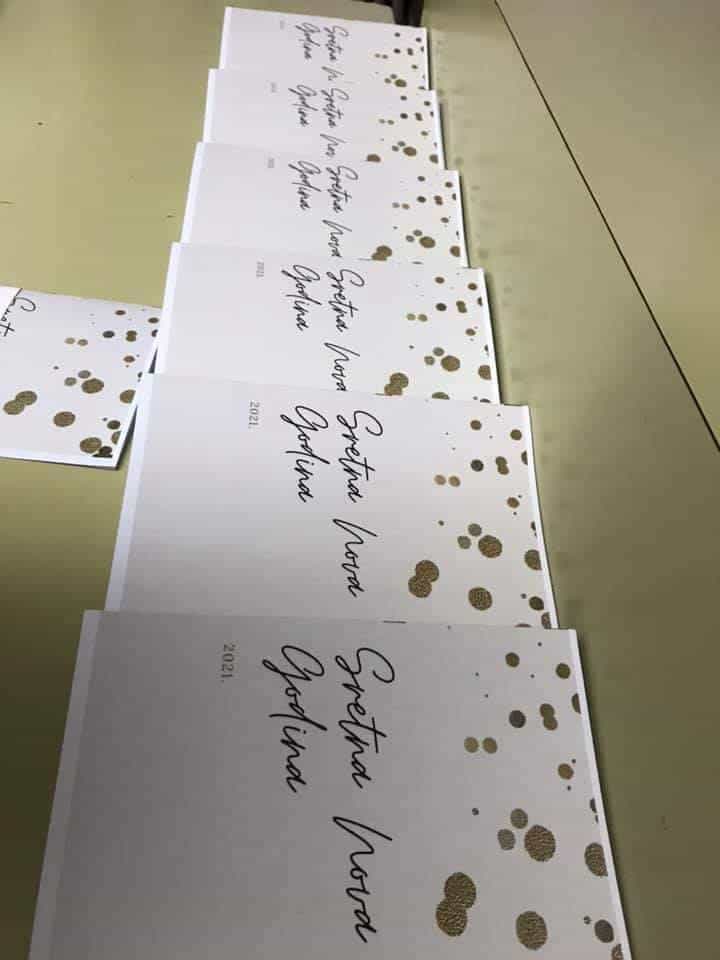 Sretna
Godina
Sretna Nov
Godina
Sretna Nova
Godina
2021.
Sretna Nova
Godina
2021.
Sretna Nova
Godina
2021.
Sretna Nova
Godina
2021.